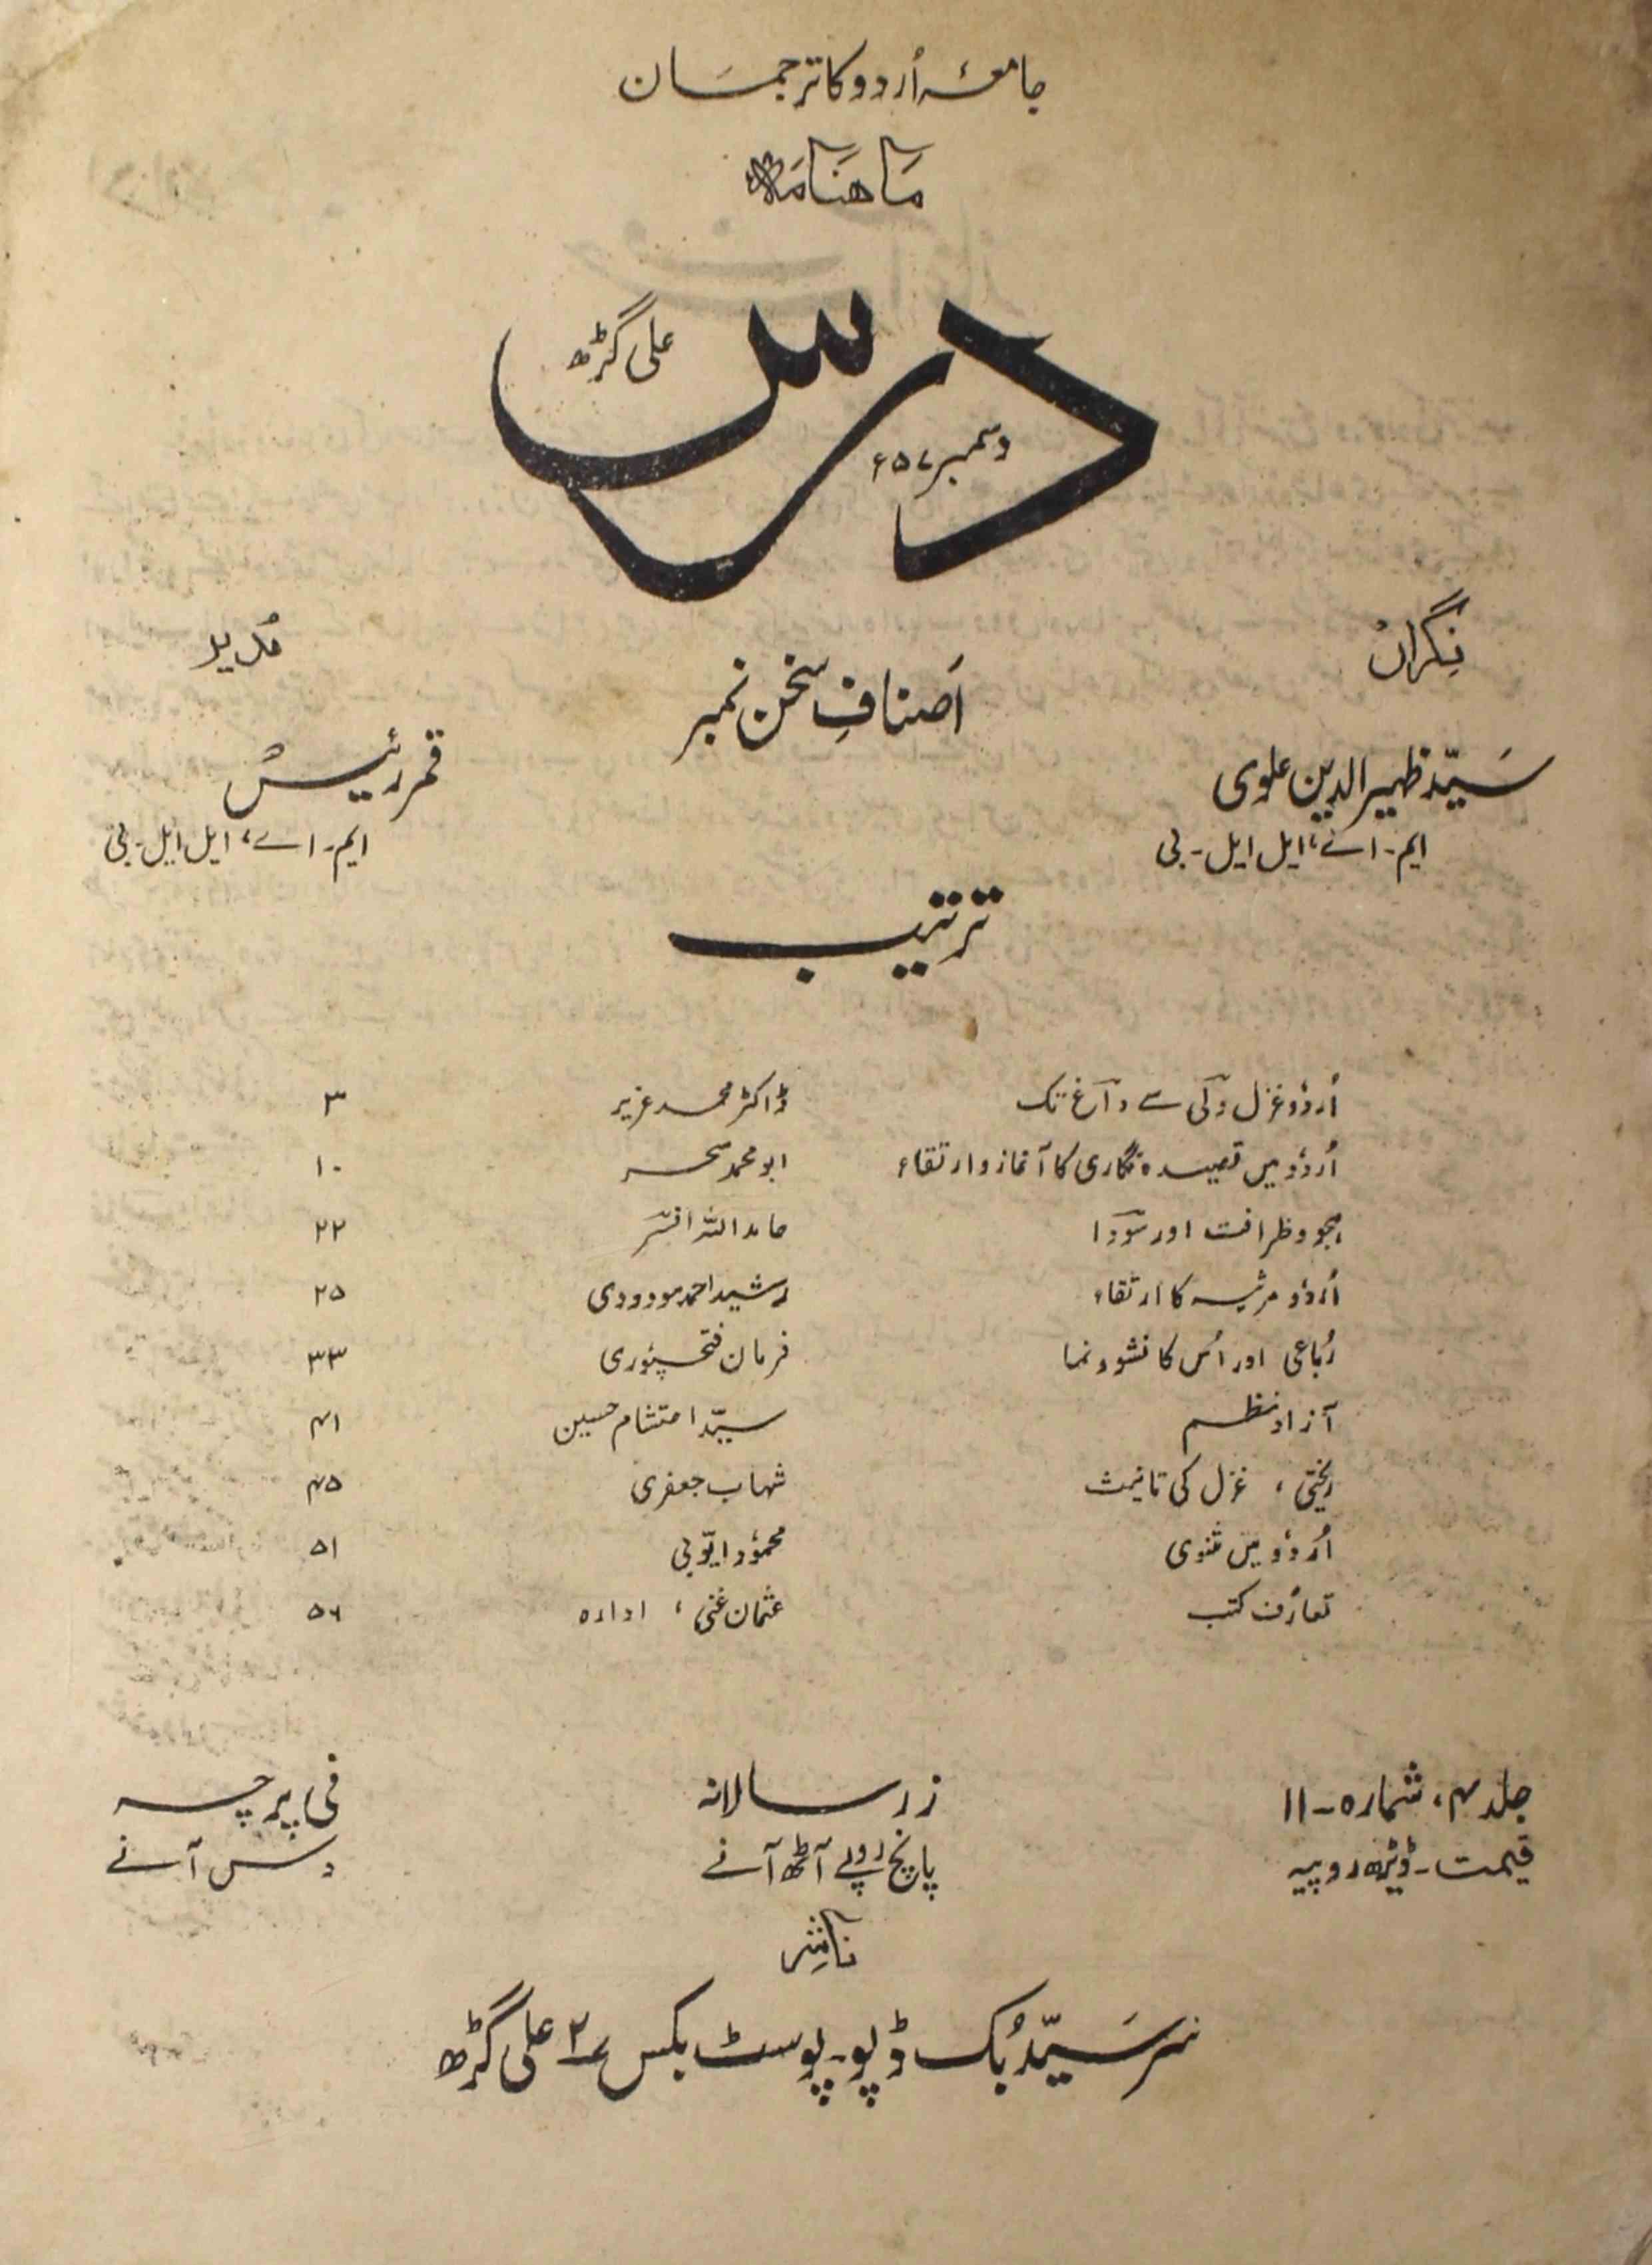 جامعۂ اُردو کا ترجمان
ماہنامہ
درس
علی گڑھ
دسمبر ۵۷ء
نگراں
مدیر
اَصنافِ سخن نمبر
سیّد ظہیر الدین علوی
قمر رئیس
ایم۔اے، ایل ایل۔بی
ایم۔اے، ایل ایل۔بی
ترتیب
اُردو غزل ولی سے داغ تک ڈاکٹر محمد عزیر ۳
اُردو میں قصیدہ نگاری کا آغاز و ارتقاء ابو محمد سحر ۱۰
ہجو و ظرافت اور سودا حامد اللہ افسر ۲۲
اُردو مرثیہ کا ارتقاء رشید احمد مودودی ۲۵
رُباعی اور اُس کا نشو و نما فرمان فتحپوری ۳۳
آزاد نظم سیّد احتشام حسین ۴۱
ریختی، غزل کی تانیث شہاب جعفری ۴۵
اُردو میں مثنوی محمود ایّوبی ۵۱
تعارف کتب عثمان غنی، ادارہ ۵۶
جلد ۴، شمارہ۔۱۱ زر سالانہ فی پرچہ
قیمت۔ڈیڑھ روپیہ پانچ روپے آٹھ آنے دس آنے
ناشر
سرسیّد بُک ڈپو۔پوسٹ بکس ۲ علی گڑھ